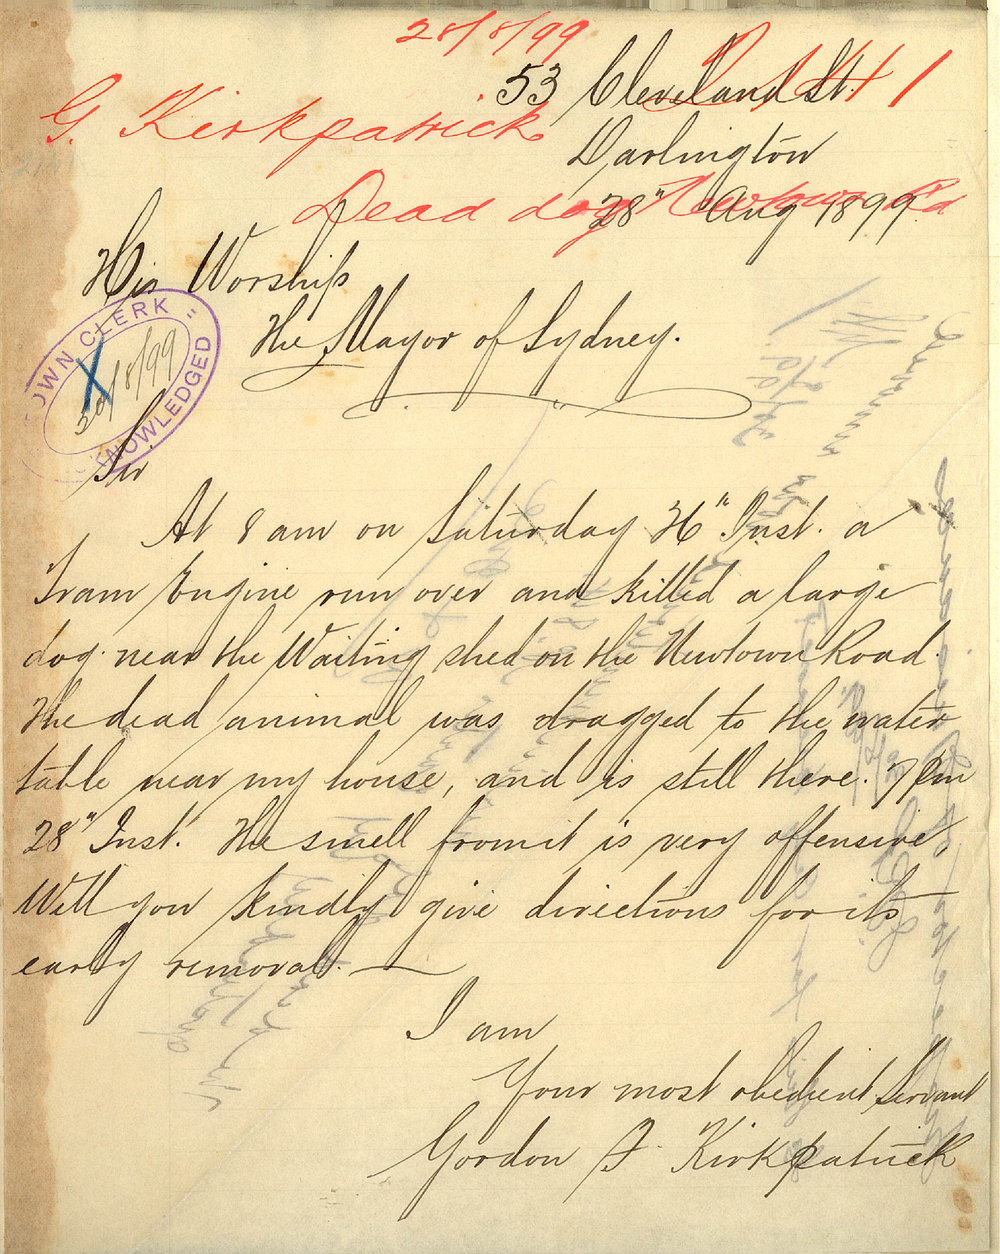 28/8/99
53 Cleveland St.
G. Kirkpatrick
Darlington
Dead dog Newtown Rd
28" Aug 1899.
His Worship
The Mayor of Sydney.
TOWN CLERK
X
30/8/99
ACKNOWLEDGED
Sir
At 8 am on Saturday 26" Inst. a
Tram Engine run over and killed a large
dog near the Waiting shed on the Newtown Road.
The dead animal was dragged to the water
table near my house, and is still there. 7 Pm
28" Inst. The smell from it is very offensive.
Will you kindly give directions for its
early removal.
I am
Your most obedient Servant
Gordon F Kirkpatrick